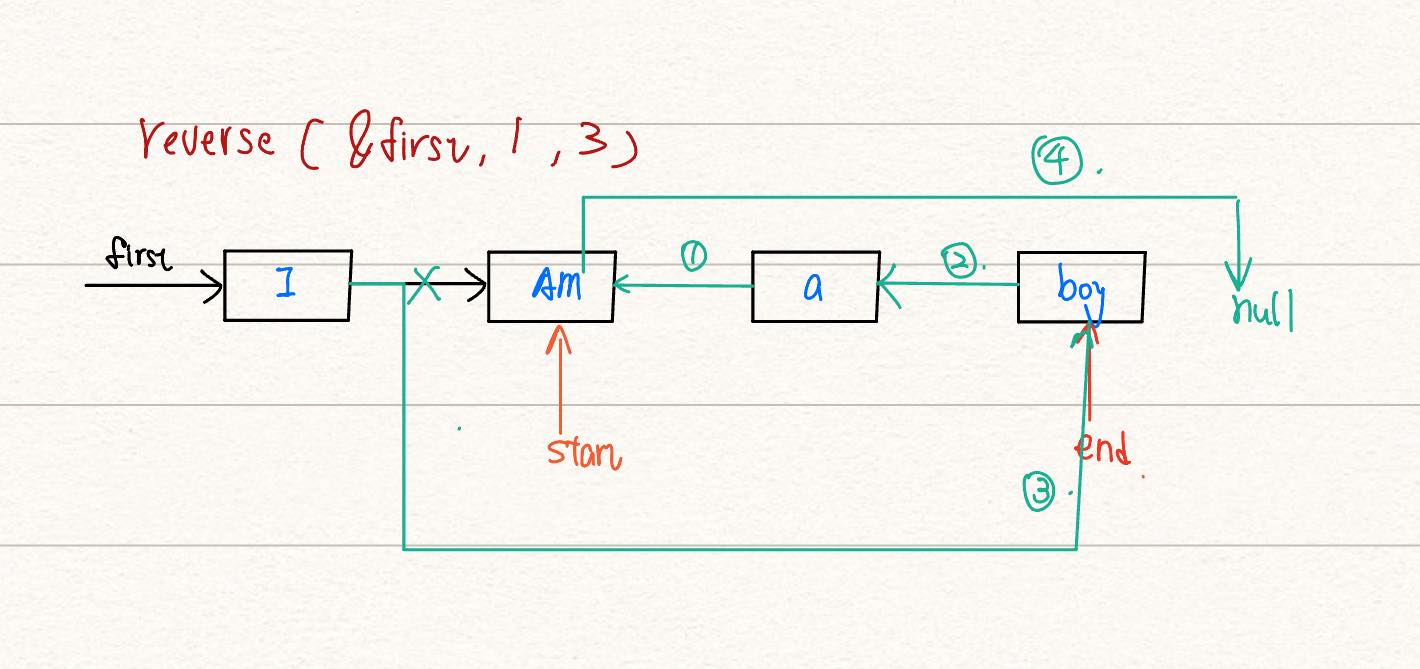 reverse ( &first, 1, 3)
④.
first
I
Am
①
a
②.
boy
null
start
end.
③.